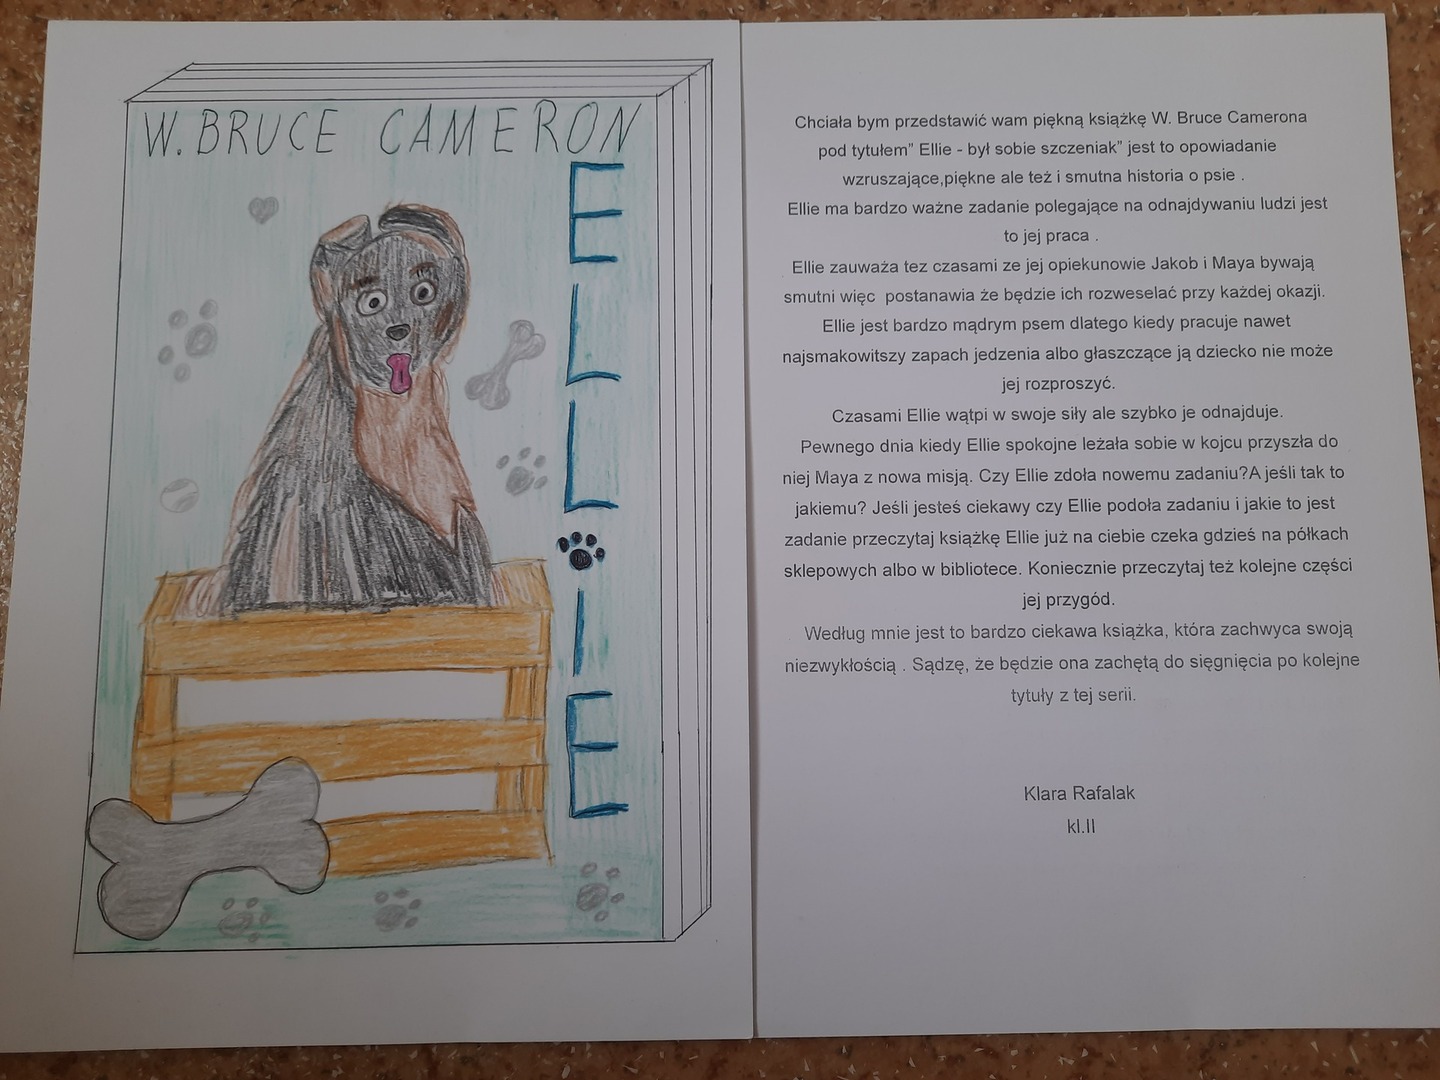 W. BRUCE CAMERON
ELLIE
Chciała bym przedstawić wam piękną książkę W. Bruce Camerona
pod tytułem” Ellie - był sobie szczeniak” jest to opowiadanie
wzruszające,piękne ale też i smutna historia o psie .
Ellie ma bardzo ważne zadanie polegające na odnajdywaniu ludzi jest
to jej praca .
Ellie zauważa tez czasami ze jej opiekunowie Jakob i Maya bywają
smutni więc postanawia że będzie ich rozweselać przy każdej okazji.
Ellie jest bardzo mądrym psem dlatego kiedy pracuje nawet
najsmakowitszy zapach jedzenia albo głaszczące ją dziecko nie może
jej rozproszyć.
Czasami Ellie wątpi w swoje siły ale szybko je odnajduje.
Pewnego dnia kiedy Ellie spokojne leżała sobie w kojcu przyszła do
niej Maya z nowa misją. Czy Ellie zdoła nowemu zadaniu?A jeśli tak to
jakiemu? Jeśli jesteś ciekawy czy Ellie podoła zadaniu i jakie to jest
zadanie przeczytaj książkę Ellie już na ciebie czeka gdzieś na półkach
sklepowych albo w bibliotece. Koniecznie przeczytaj też kolejne części
jej przygód.
Według mnie jest to bardzo ciekawa książka, która zachwyca swoją
niezwykłością . Sądzę, że będzie ona zachętą do sięgnięcia po kolejne
tytuły z tej serii.
Klara Rafalak
kl.II